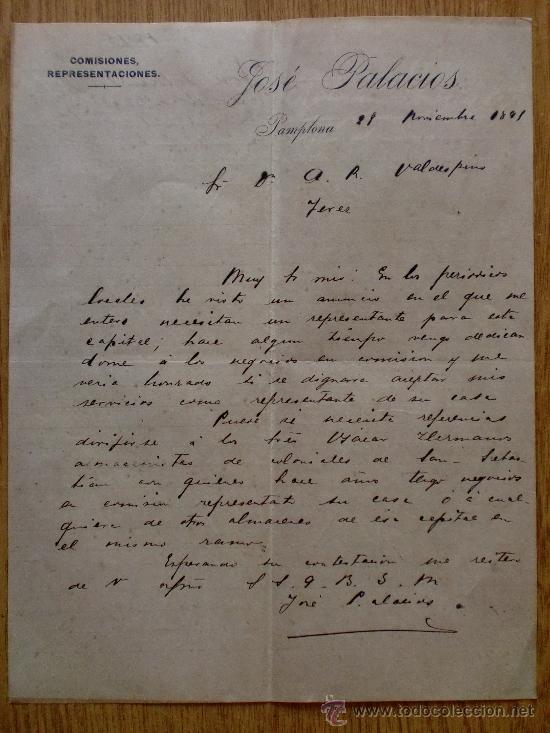 COMISIONES,
REPRESENTACIONES.
José Palacios.
Pamplona 29 Noviembre 1891
Sr Dn A. R. Valdespino
Jerez
Muy Sr mio: En los periodicos
locales he visto un anuncio en el que me
entero necesitan un representante para esta
capital; hace algun tiempo vengo dedican
dome á los negocios en comision y me
veria honrado si se dignara aceptar mis
servicios como representante de su casa
Puede si necesita referencias
dirijirse á los Sres Hermanos
almacenistas de coloniales de San-Sebas
tian con quienes hace años tengo negocios
en comision representado su casa ó á cual
quiera de otros almacenes de esa capital en
el mismo ramo.
Esperando su contestacion me reitero
de V. afmo S. S. Q. B. S. M
José Palacios
todocoleccion
www.todocoleccion.net